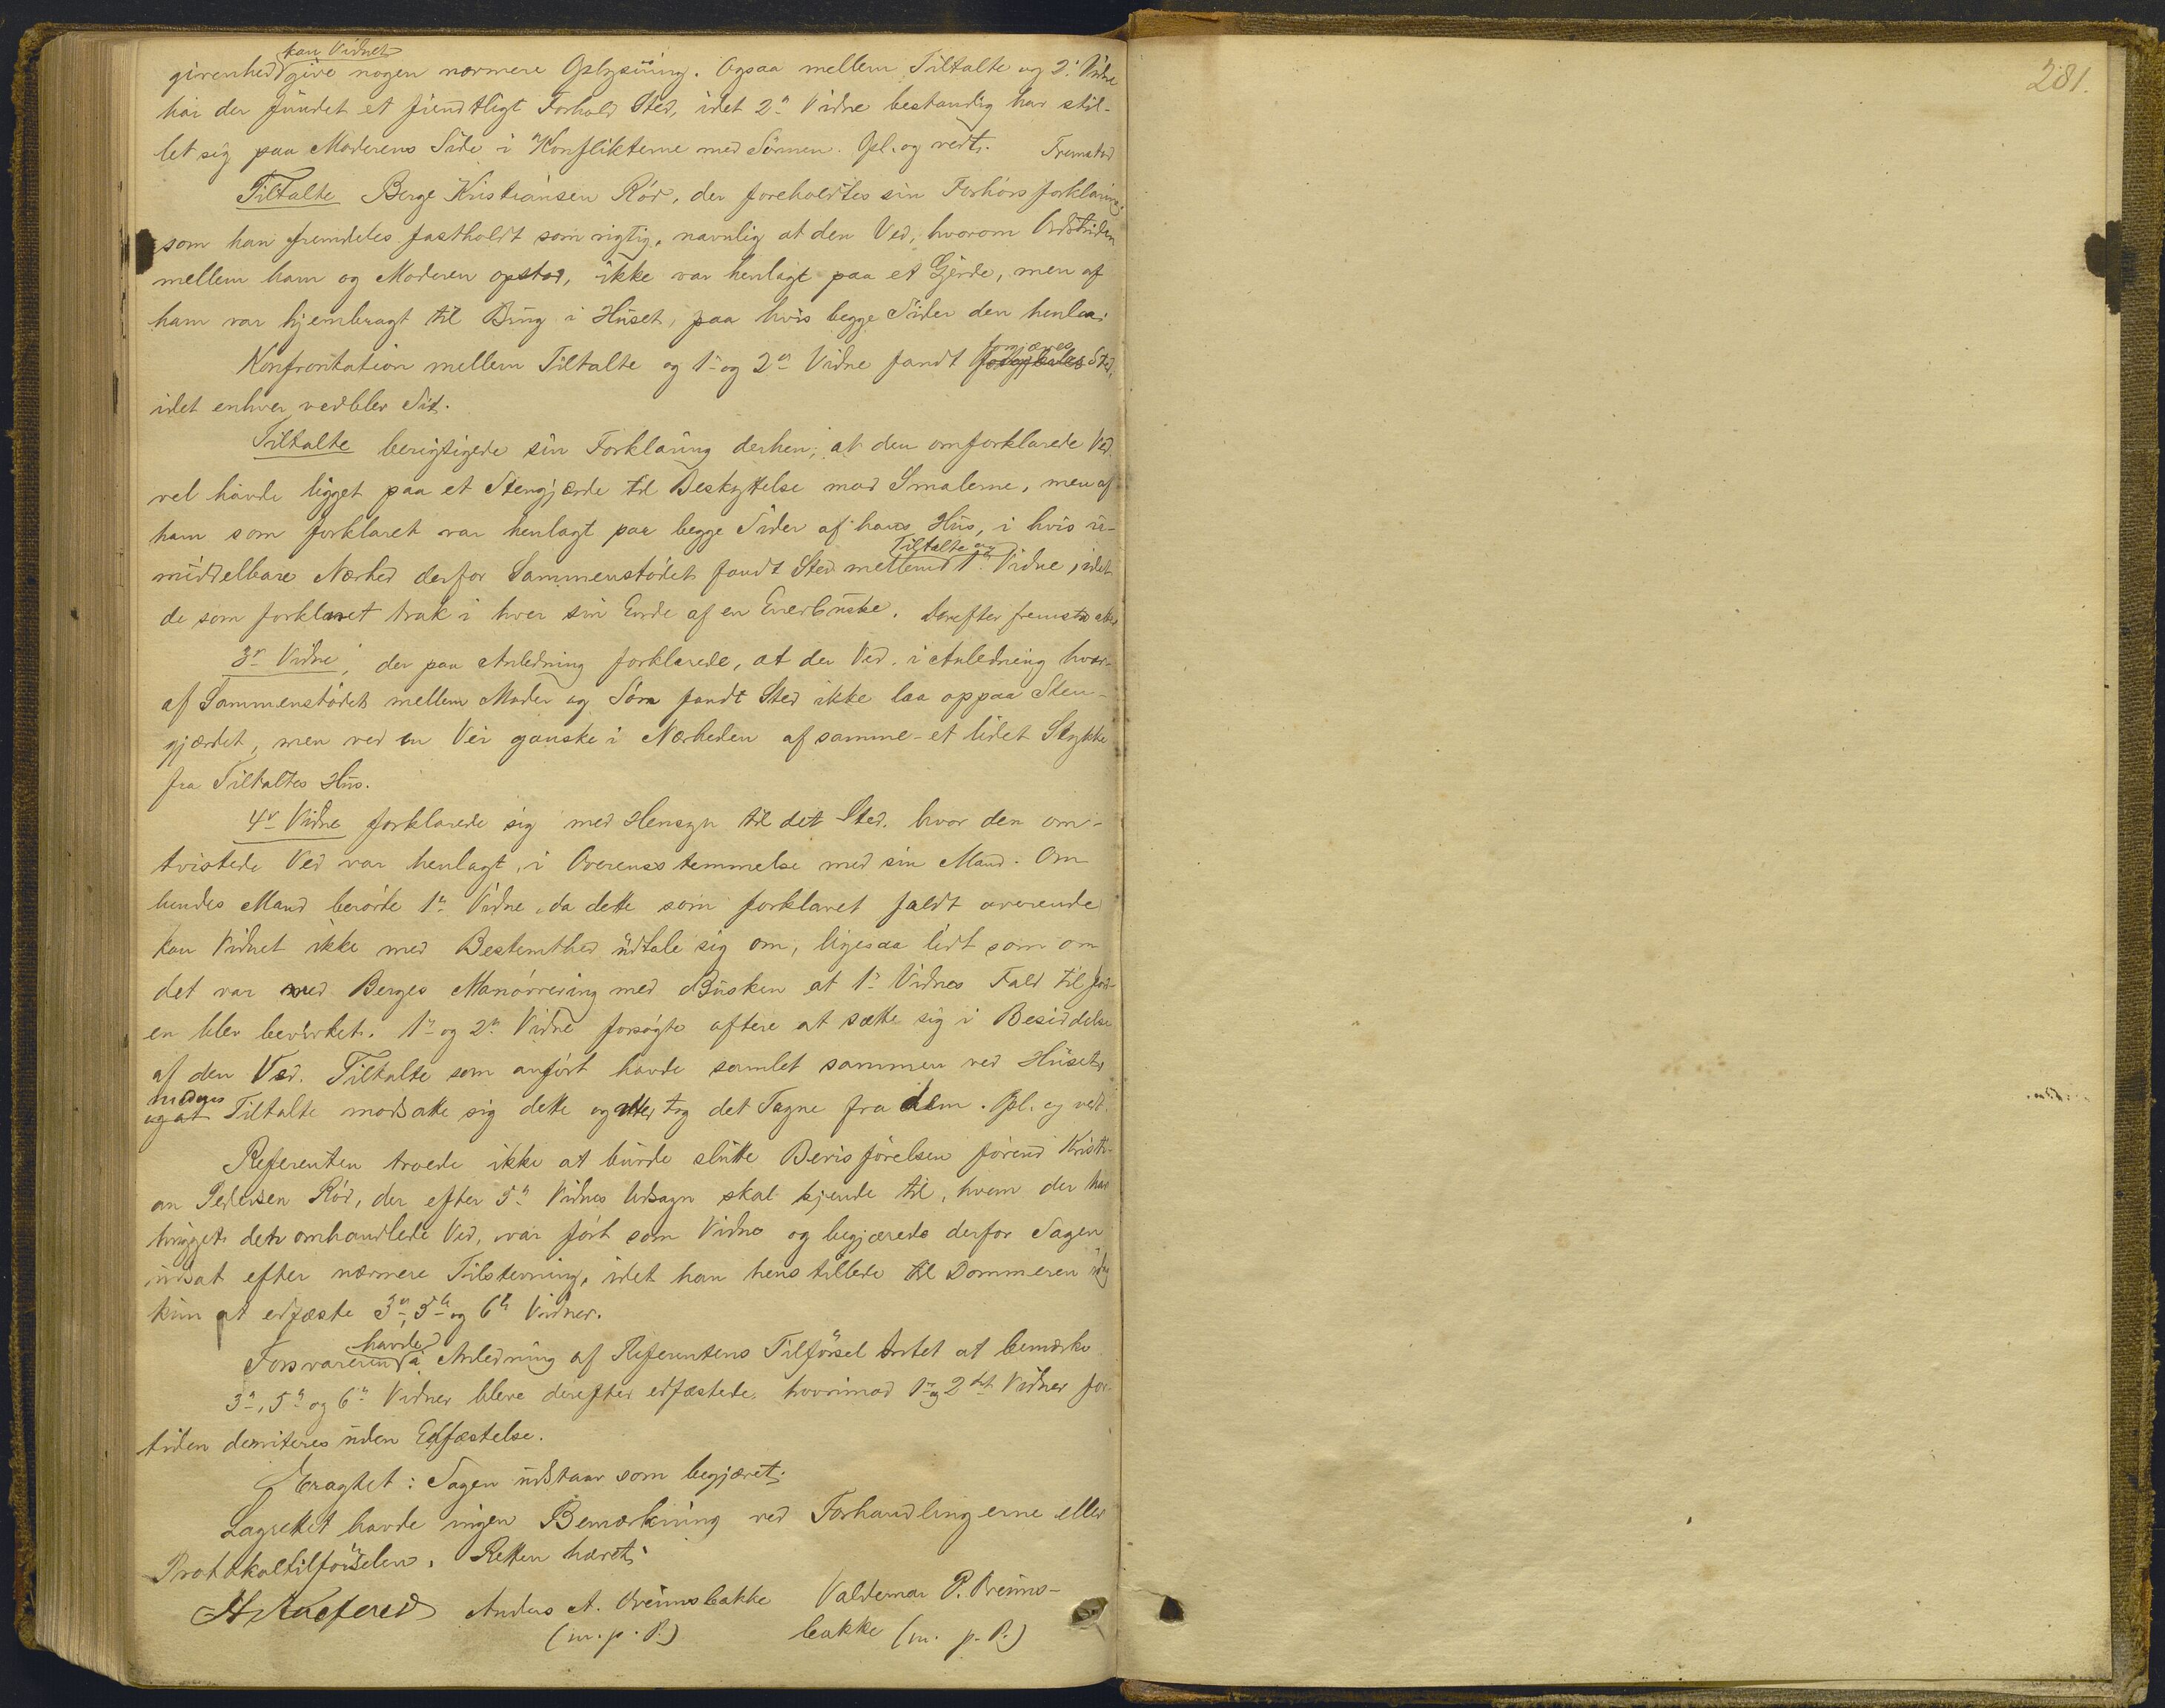 kan Vidnet
givenhed give nogen nærmere Oplysning. Ogsaa mellem Tiltalte og 2. Vidne
har der fundet et fiendtligt Forhold Sted, idet 2n Vidne bestandig har stil-
let sig paa Moderens Side i Konflikterne med Sønnen. Opl. og vedt. Fremstod
Tiltalte Berge Kristiansen Rød, der foreholdtes sin Forhørsforklaring,
som han fremdeles fastholdt som rigtig, navnlig at den Ved, hvorom Ordstriden
mellem ham og Moderen opstod, ikke var henlagt paa et Gjerde, men af
ham var hjembragt til Brug i Huset, paa hvis begge Sider den henlaa.
forgjæves
Konfrontation mellem Tiltalte og 1n og 2n Vidne fandt Sted,
idet enhver vedblev Sit.
Tiltalte berigtigede sin Forklaring derhen, at den omforklarede Ved
vel havde ligget paa et Stengjærde til Beskyttelse mod Smalerne, men af
ham som forklaret var henlagt paa begge Sider af hans Hus, i hvis u-
Tiltalte og
middelbare Nærhed derfor Sammenstødet fandt Sted mellem 1. Vidne, idet
de som forklaret trak i hver sin Ende af en Enerbuske. Derefter fremstod atter
3n Vidne, der paa Anledning forklarede, at der Ved, i Anledning hvor-
af Sammenstødet mellem Moder og Søn fandt Sted ikke laa oppaa Sten-
gjærdet, men ved en Vei ganske i Nærheden af samme - et lidet Stykke
fra Tiltaltes Hus.
4n Vidne forklarede sig med Hensyn til det Sted, hvor den om-
tvistede Ved var henlagt, i Overensstemmelse med sin Mand. Om
hendes Mand berørte 1n Vidne, da dette som forklaret faldt overende
kan Vidnet ikke med Bestemthed udtale sig om, ligesaa lidt som om
det var ved Berges Manøvrering med Busken at 1n Vidnes Fald til Jord-
en blev bevirket. 1n og 2n Vidne forsøgte oftere at sætte sig i Besiddelse
af den Ved, Tiltalte som anført havde samlet sammen ved Huset,
medens
og at Tiltalte modsatte sig dette og tog det Tagne fra dem. Opl. og vedt.
Referenten troede ikke at burde slutte Bevisførelsen førend Kristi-
an Pedersen Rød, der efter 5n Vidnes Udsagn skal kjende til, hvem der har
hugget den omhandlede Ved, var ført som Vidne og begjærede derfor Sagen
udsat efter nærmere Tilstevning, idet han henstillede til Dommeren idag
kun at edfæste 3n, 5n og 6n Vidner.
havde
Forsvareren i Anledning af Referentens Tilførsel Intet at bemærke
3n, 5n og 6n Vidner bleve derefter edfæstede, hvorimod 1n og 2det Vidner for-
tiden demiteres uden Edfæstelse.
Eragtet: Sagen udstaar som begjæret.
Lagrettet havde ingen Bemærkning ved Forhandlingerne eller
Protokoltilførselen. Retten hævet.
Anders A. Breimsbakke Valdemar P. Breims-
(m. p. P.) bakke (m. p. P.)
281.